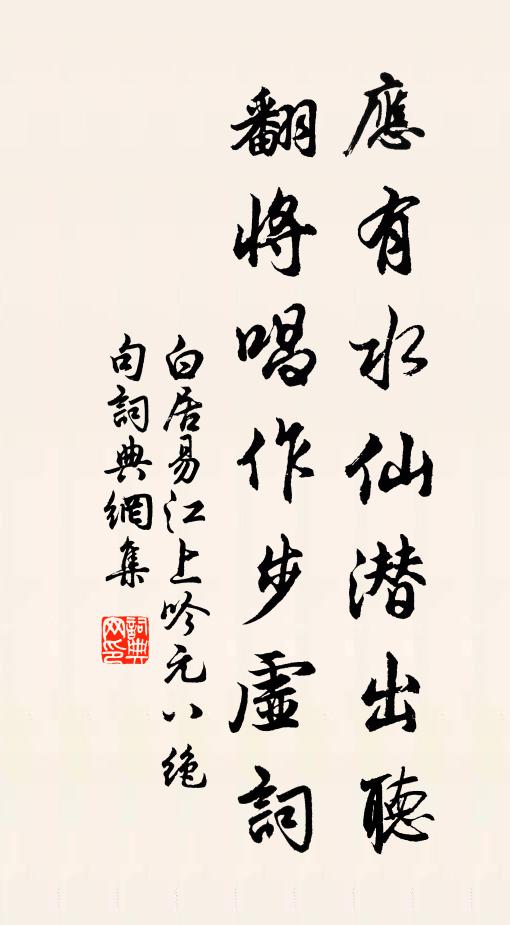 應有水仙潜出聽
翻將唱作步虛詞
白居易江上吟元八絶
句詞典網集
詞典
网印